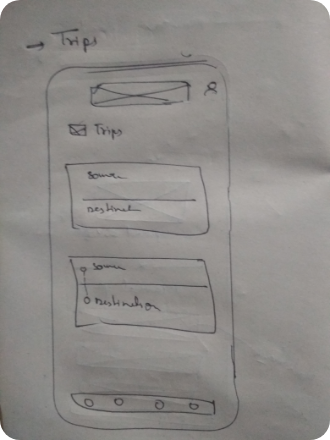 → Trips
Trips
Source
Destination
Source
Destination